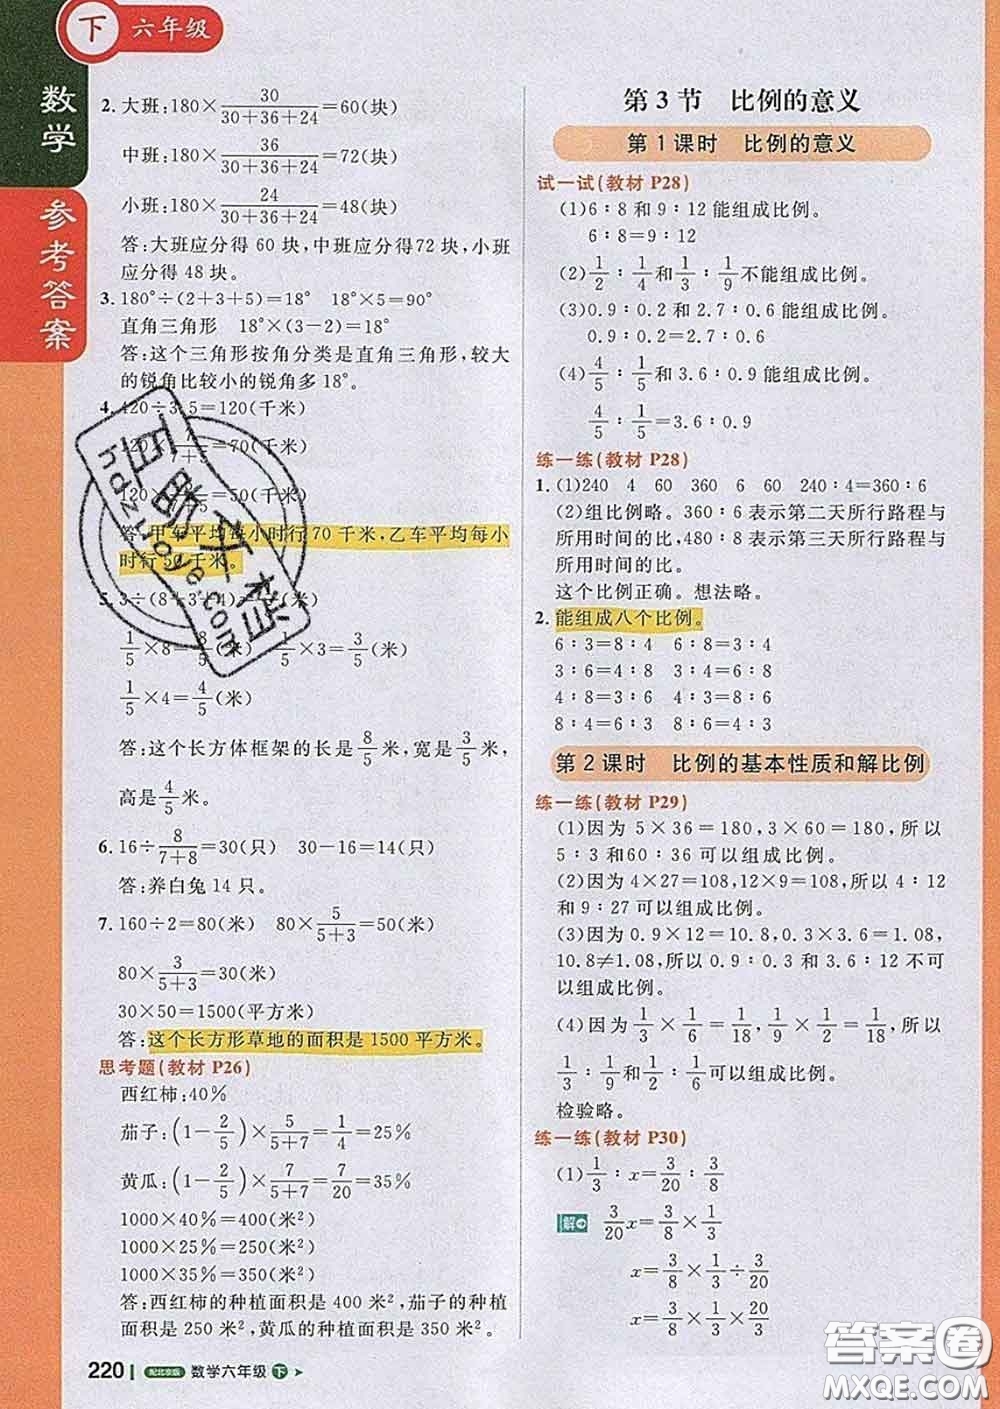 下 六年级
数学
参考答案
2. 大班:180×30/(30+36+24)=60(块)
中班:180×36/(30+36+24)=72(块)
小班:180×24/(30+36+24)=48(块)
答:大班应分得 60 块,中班应分得72 块,小班
应分得 48 块。
3. 180°÷(2+3+5)=18° 18°×5=90°
直角三角形 18°×(3-2)=18°
答:这个三角形按角分类是直角三角形,较大
的锐角比较小的锐角多 18°。
4. 420÷3.5=120(千米)
=70(千米)
=50(千米)
答:甲车平均每小时行 70 千米,乙车平均每小
时行 50 千米。
5. 3÷(8+3+4)
1/5×8=8/5(米) 1/5×3=3/5(米)
1/5×4=4/5(米)
答:这个长方体框架的长是8/5米,宽是3/5米,
高是4/5米。
6. 16÷8/(7+8)=30(只) 30-16=14(只)
答:养白兔 14 只。
7. 160÷2=80(米) 80×5/(5+3)=50(米)
80×3/(5+3)=30(米)
30×50=1500(平方米)
答:这个长方形草地的面积是 1500 平方米。
思考题(教材 P26)
西红柿:40%
茄子:(1-2/5)×5/(5+7)=1/4=25%
黄瓜:(1-2/5)×7/(5+7)=7/20=35%
1000×40%=400(米²)
1000×25%=250(米²)
1000×35%=350(米²)
答:西红柿的种植面积是 400 米²,茄子的种植
面积是 250 米²,黄瓜的种植面积是 350 米²。
220 配北京版 数学六年级 下
第 3 节 比例的意义
第 1 课时 比例的意义
试一试(教材 P28)
(1)6∶8 和 9∶12 能组成比例。
6∶8=9∶12
(2)1/2∶1/4和1/3∶1/9不能组成比例。
(3)0.9∶0.2 和 2.7∶0.6 能组成比例。
0.9∶0.2=2.7∶0.6
(4)4/5∶1/5和 3.6∶0.9 能组成比例。
4/5∶1/5=3.6∶0.9
练一练(教材 P28)
1. (1)240 4 60 360 6 60 240∶4=360∶6
(2)组比例略。360∶6 表示第二天所行路程与
所用时间的比,480∶8 表示第三天所行路程与
所用时间的比。
这个比例正确。想法略。
2. 能组成八个比例。
6∶3=8∶4 6∶8=3∶4
3∶6=4∶8 3∶4=6∶8
4∶8=3∶6 4∶3=8∶6
8∶4=6∶3 8∶6=4∶3
第 2 课时 比例的基本性质和解比例
练一练(教材 P29)
(1)因为 5×36=180,3×60=180,所以
5∶3 和60∶36 可以组成比例。
(2)因为 4×27=108,12×9=108,所以 4∶12
和 9∶27 可以组成比例。
(3)因为 0.9×12=10.8,0.3×3.6=1.08,
10.8≠1.08,所以 0.9∶0.3 和 3.6∶12 不可
以组成比例。
(4)因为1/3×1/6=1/18,1/9×1/2=1/18,所以
1/3∶1/9和1/2∶1/6可以组成比例。
检验略。
练一练(教材 P30)
(1)1/3∶x=3/20∶3/8
解 3/20x=3/8×1/3
x=3/8×1/3÷3/20
x=3/8×1/3×20/3
百助文档
hdzuoye.com
答案圈
MXQE.COM